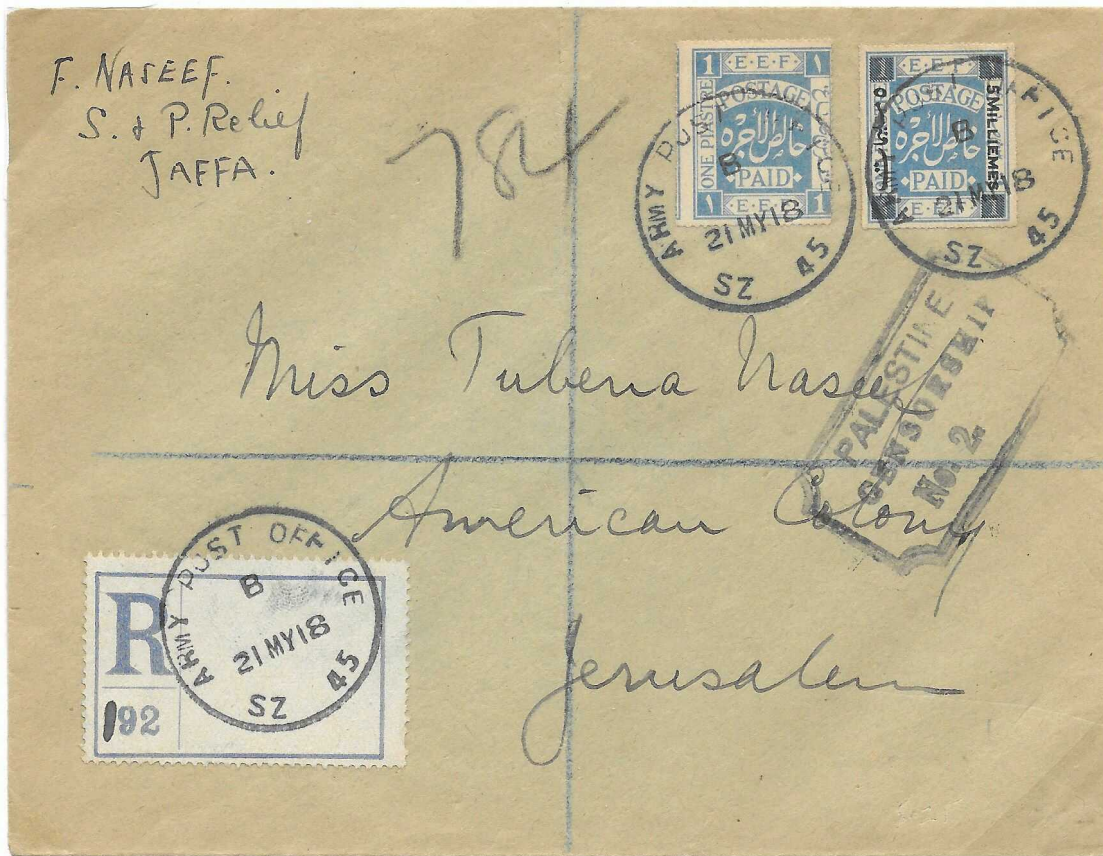 F. NASEEF.
S. & P. Relief
JAFFA.
784
E·E·F
1 ١
POSTAGE
ONE PISTRE
خالص الاجره
PAID
١ 1
E·E·F
ARMY POST OFFICE
B
21 MY 18
SZ 45
E·E·F
POSTAGE
5 MILLIEMES
خالص الاجره
PAID
E·E·F
ARMY POST OFFICE
B
21 MY 18
SZ 45
PALESTINE
CENSORSHIP
No. 2.
Miss Tubena Naseef
American Colony
Jerusalem
R
192
ARMY POST OFFICE
B
21 MY 18
SZ 45